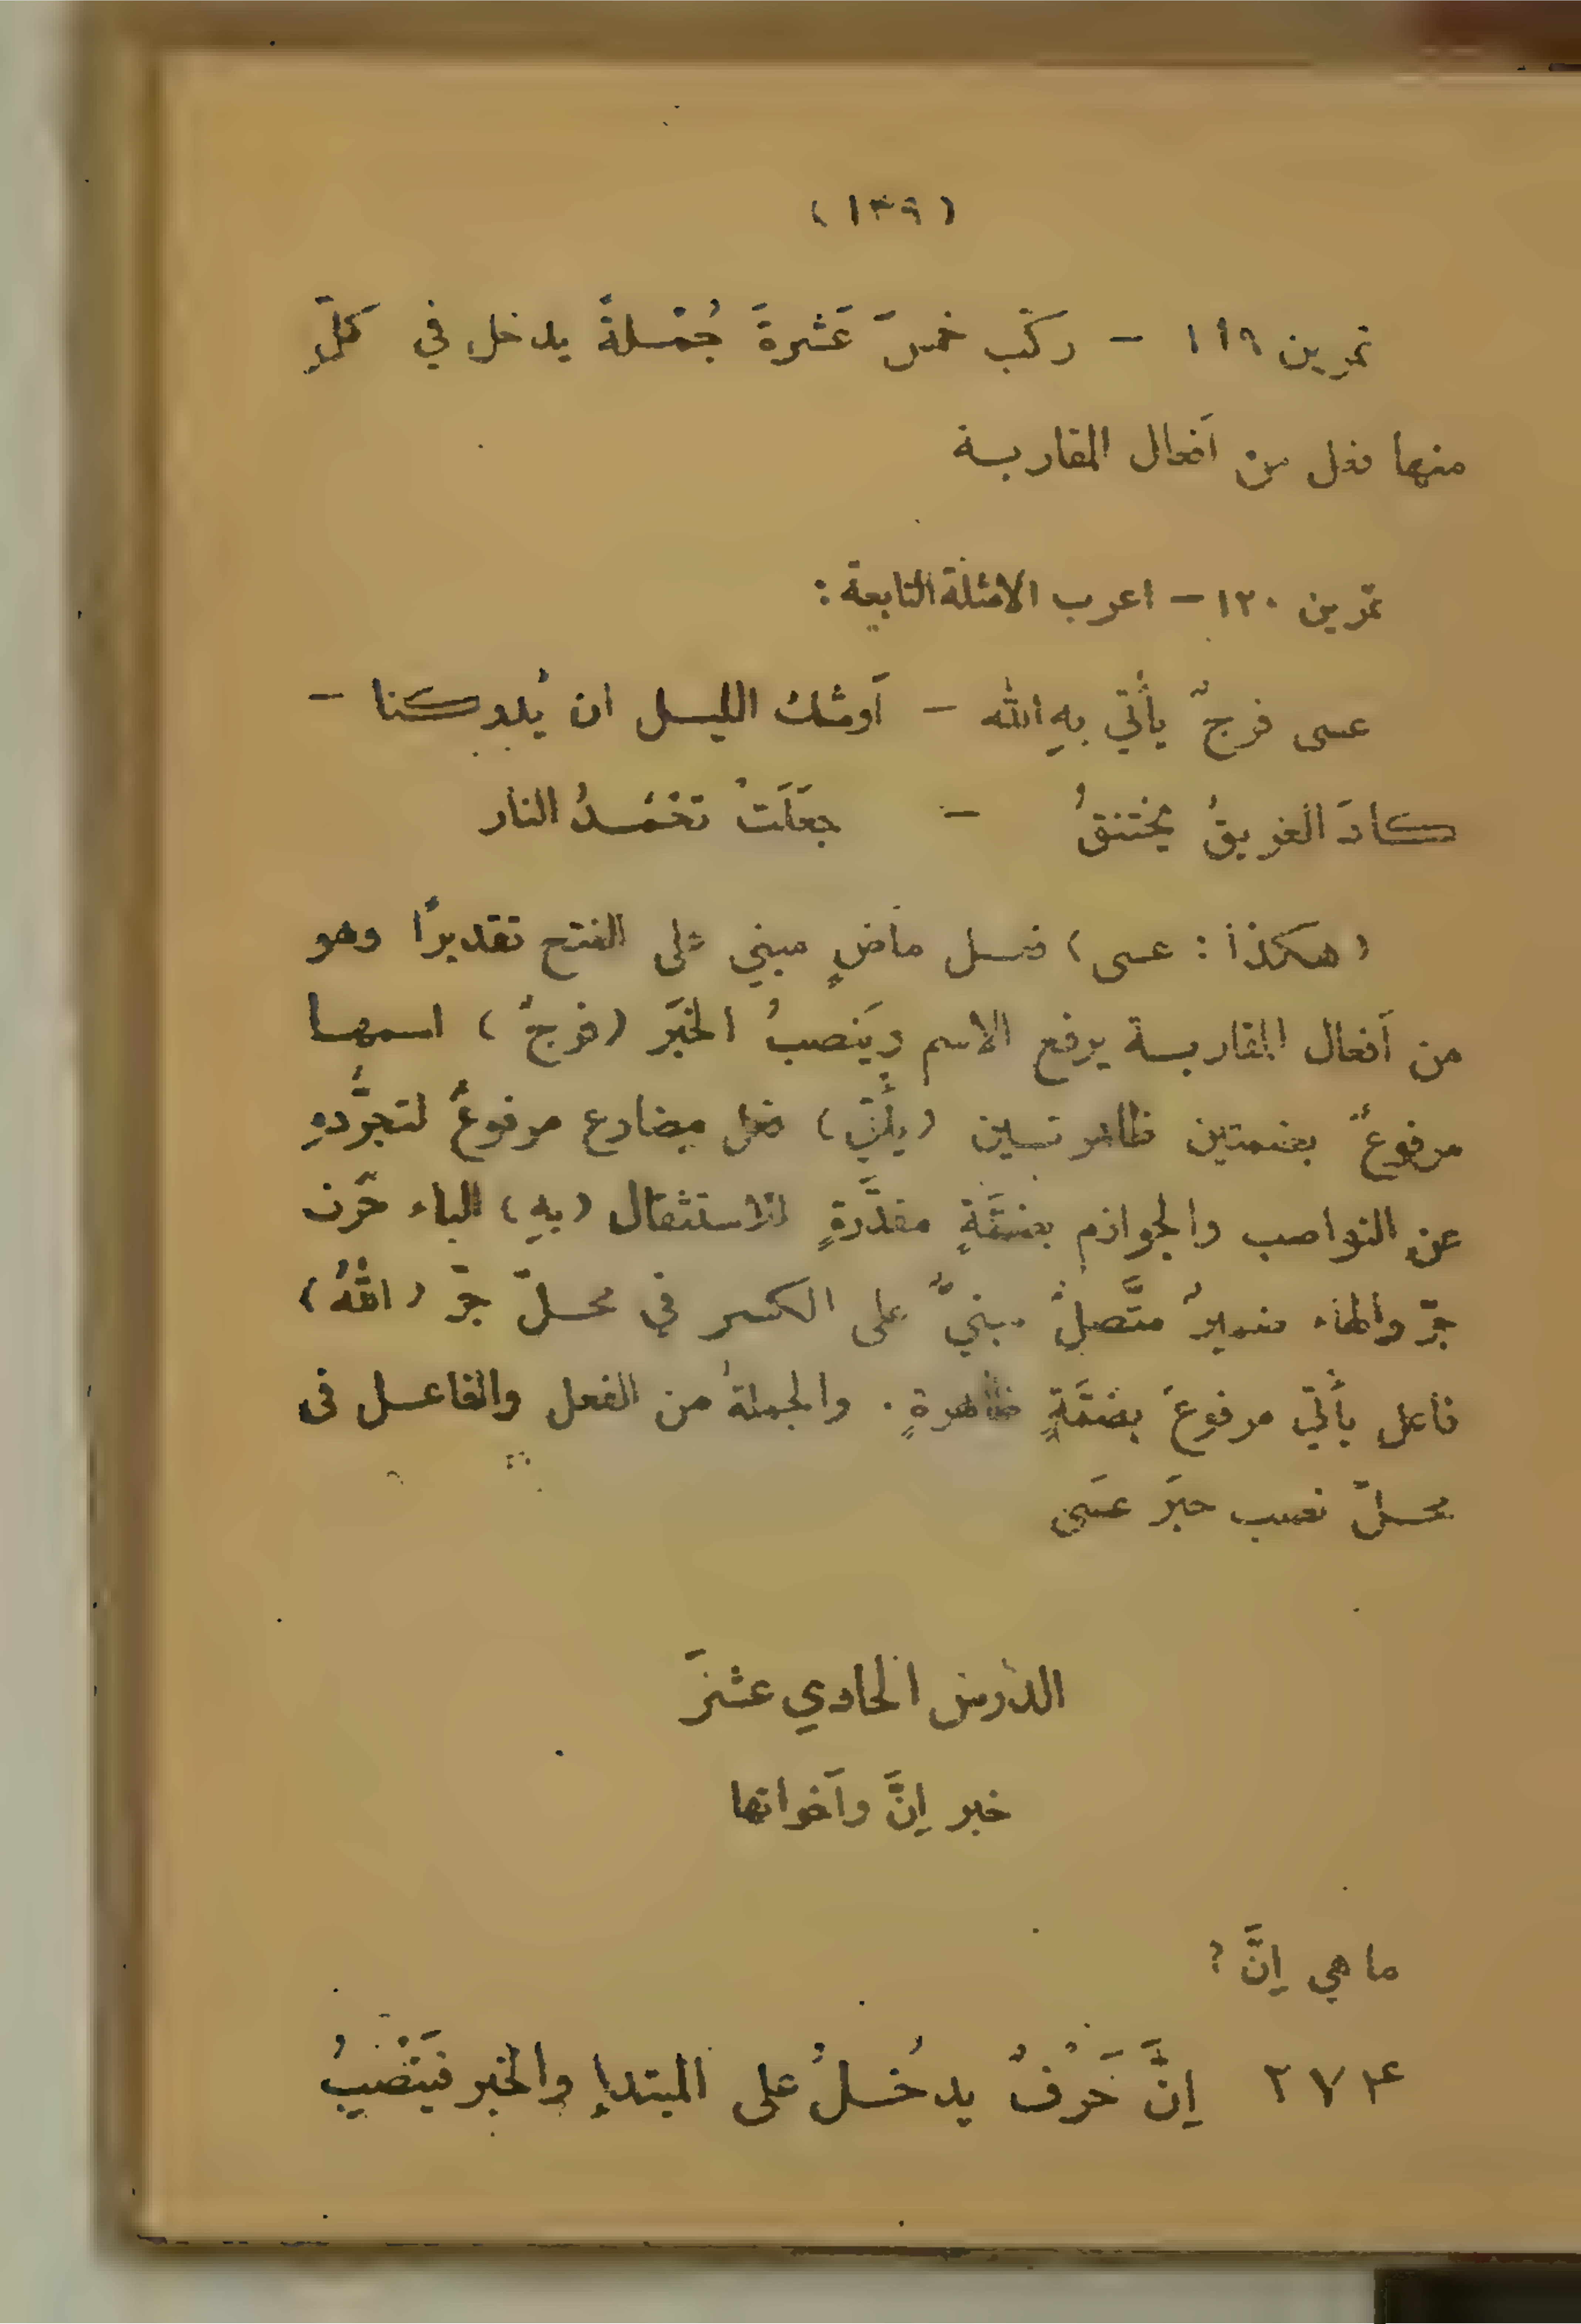 (١٣٩)
تمرين ١١٩ – ركّب خمسَ عَشرةَ جُمْلةً يدخل في كلٍّ
منها فعل من أَفعال المقاربة
تمرين ١٢٠ – اعرب الامثلة التابعة :
عسى فرجٌ يأْتي بهِ الله – أَوشكَ الليل ان يُدركنا –
كادَ الغريقُ يختنقُ – جعَلَتْ تَخْمُدُ النار
(هكذا : عسى) فعل ماضٍ مبني على الفتح تقديرًا وهو
من أَفعال المقاربة يرفع الاسم ويَنصبُ الخبَر (فرجٌ) اسمها
مرفوعٌ بضمتين ظاهرتين (يأْتي) فعل مضارع مرفوعٌ لتجرُّدهِ
عن النواصب والجوازم بضمَّةٍ مقدَّرةٍ للاستثقال (بهِ) الباء حَرف
جرّ والهاء ضميرٌ متَّصلٌ مبنيٌّ على الكسر في محلّ جرّ (اللهُ)
فاعل يأْتي مرفوعٌ بضمَّةٍ ظاهرةٍ . والجملةُ من الفعل والفاعل في
محلّ نصب خبَر عسَى
الدرس الحادي عشرَ
خبر إِنَّ وأَخواتها
ما هي إِنَّ ؟
٢٧٤ إِنَّ حَرْفٌ يدخُلُ على المبتدإِ والخبر فيَنْصِبُ